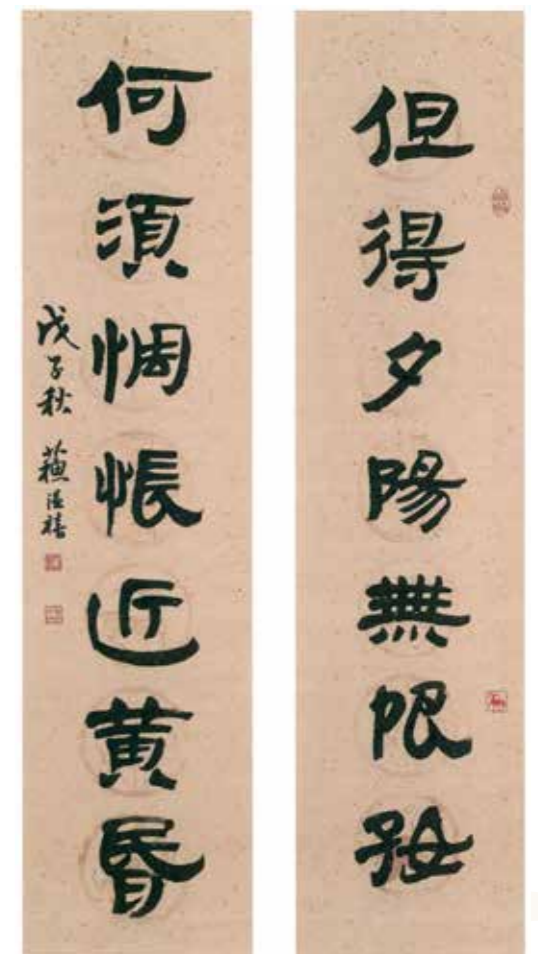 但得夕陽無限好
何須惆悵近黄昏
戊子秋 蘇